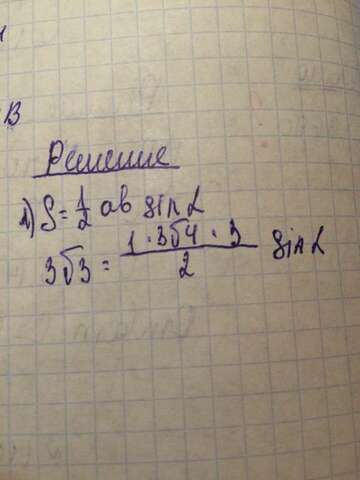 В
Решение
1) S = 1/2 ab sin α
3√3 = (1 · 3√4 · 3)/2 sin α